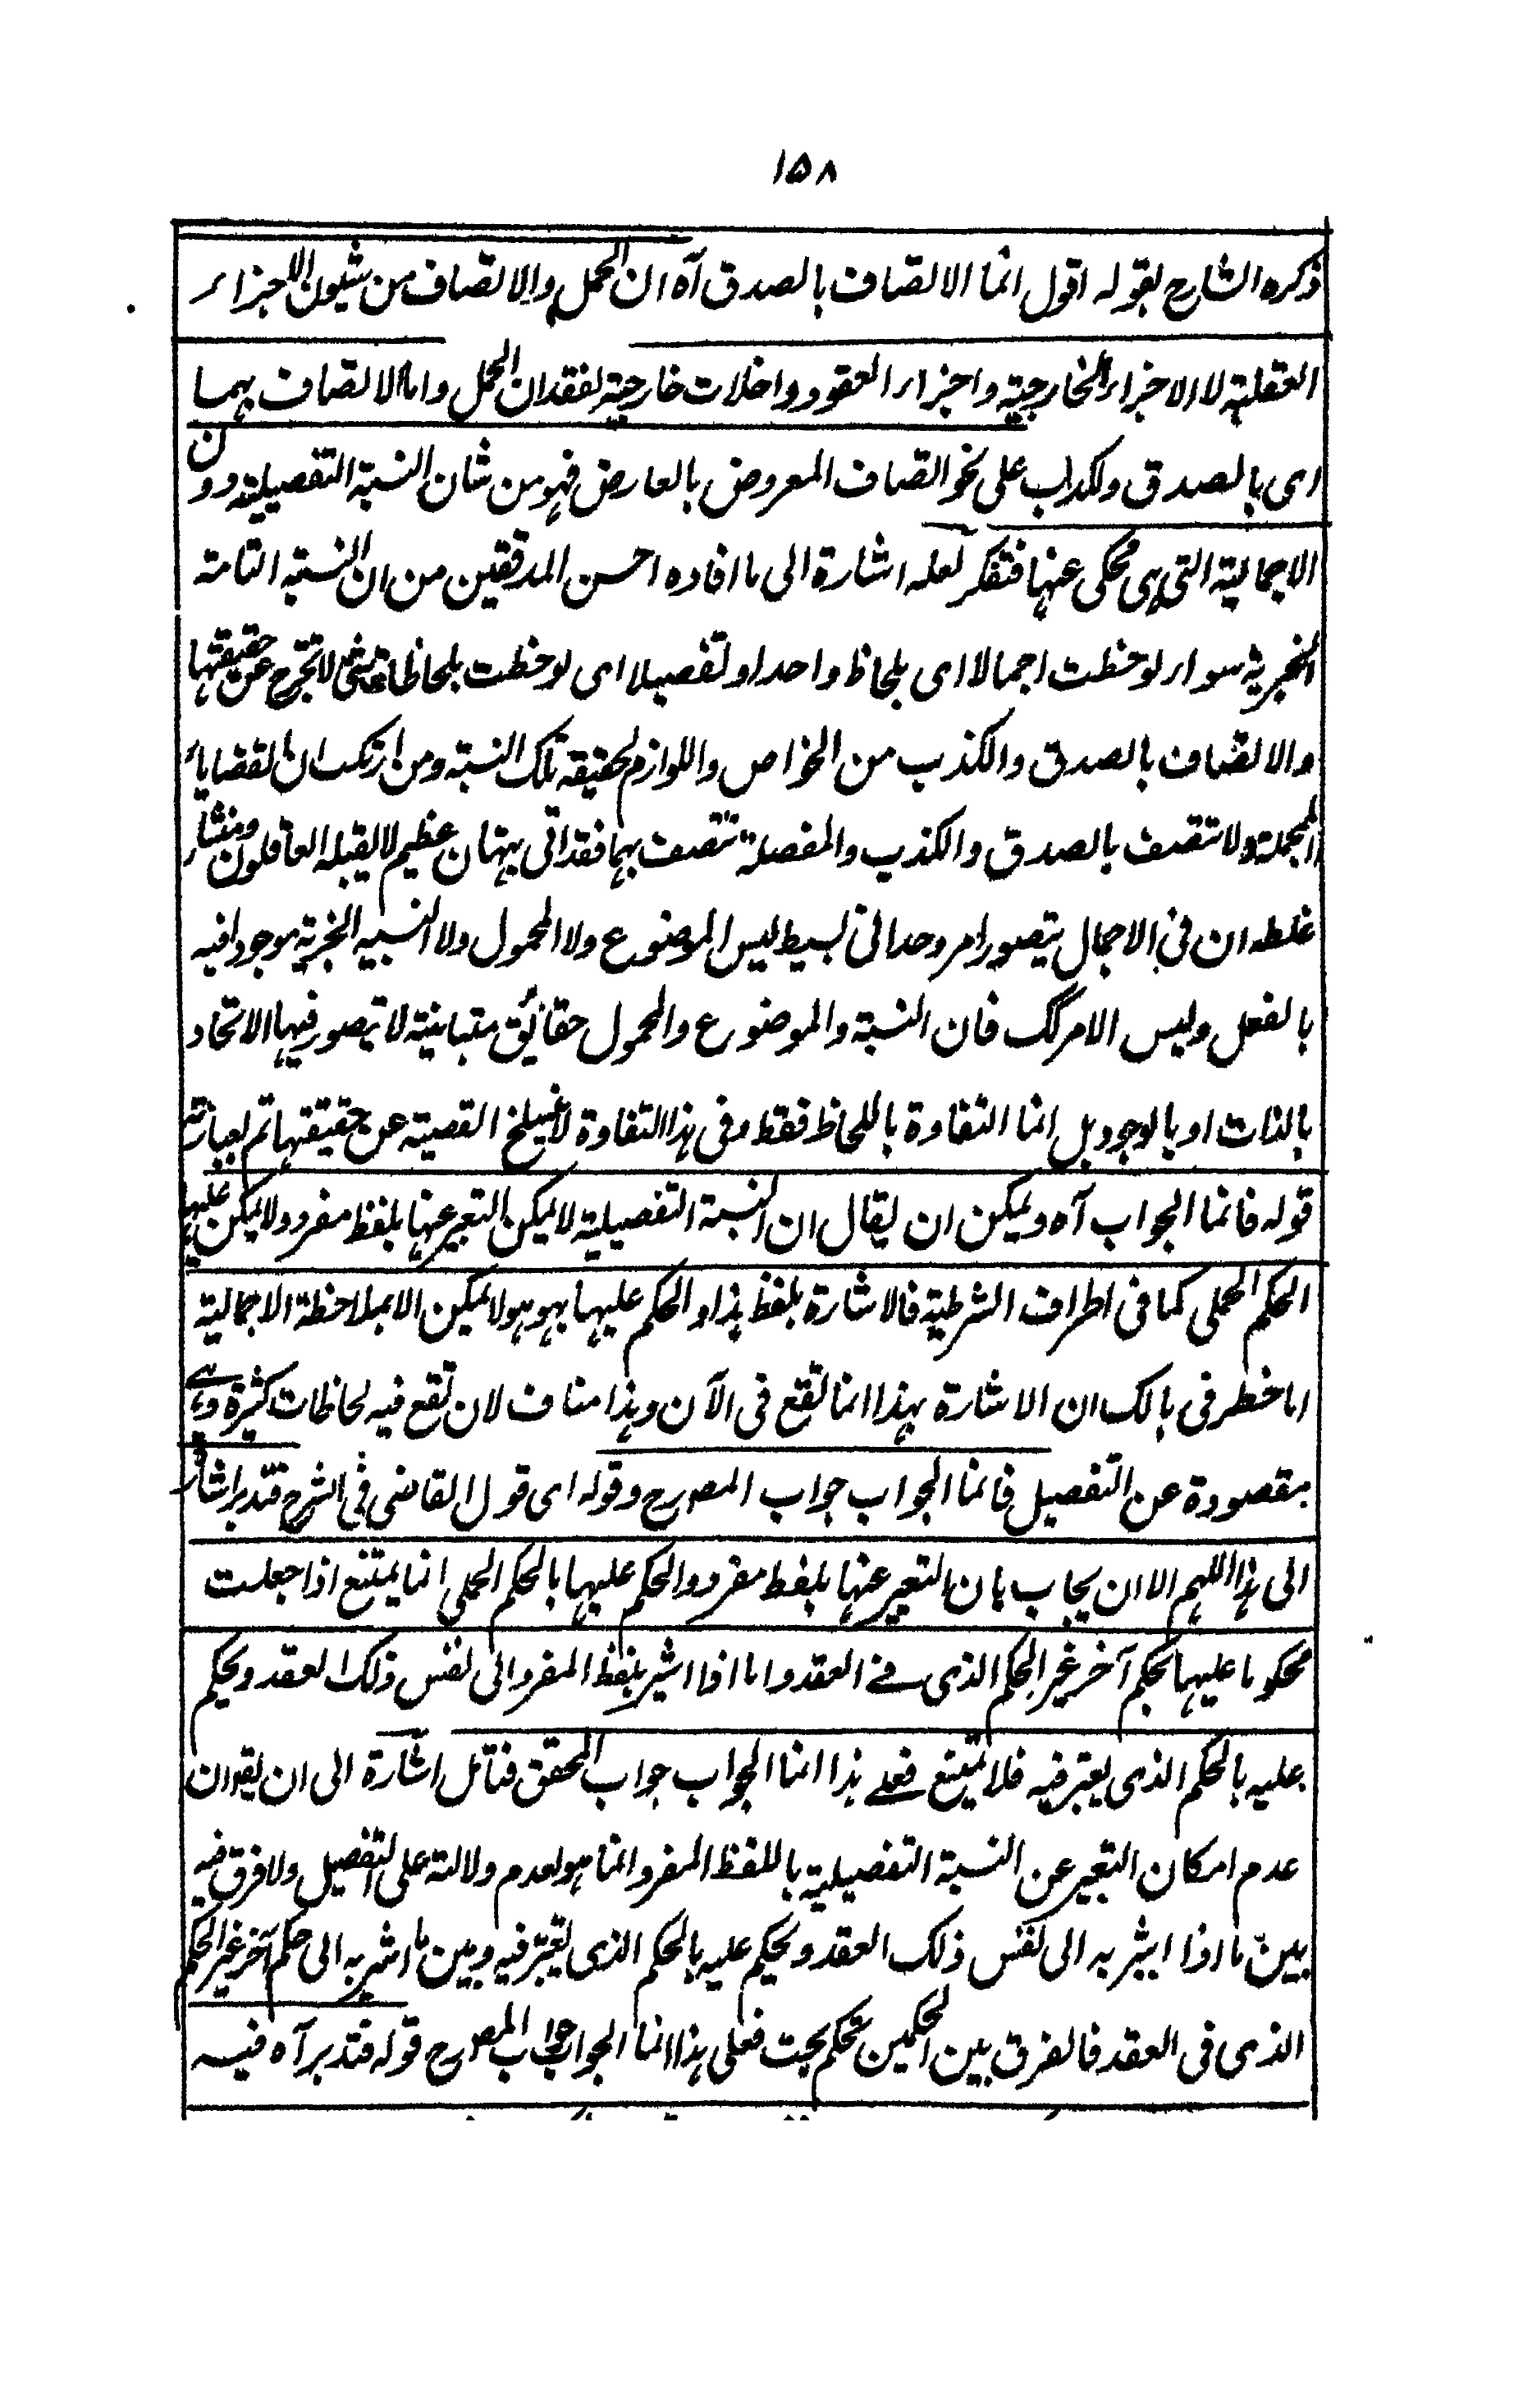 ١٥٨
ذكره الشارح بقوله اقول انما الاتصاف بالصدق آه ان الحمل والاتصاف من شيون الاجزاء
العقلية لا الاجزاء الخارجية واجزاء العقود داخلات خارجية لفقدان الحمل واما الاتصاف بهما
اى بالصدق والكذب على نحو اتصاف المعروض بالعارض فهو من شان النسبة التفصيلية دون
الاجمالية التى هى محكى عنها فتفكر لعله اشارة الى ما افاده احسن المدققين من ان النسبة التامة
الخبرية سواء لوحظت اجمالا اى بلحاظ واحد او تفصيلا اى لوحظت بلحاظات شتى لا تخرج عن حقيقتها
والاتصاف بالصدق والكذب من الخواص واللوازم لحقيقة تلك النسبة ومن ارتكب ان القضايا
المجملة لا تتصف بالصدق والكذب والمفصلة تتصف بهما فقد اتى ببهتان عظيم لا يقبله العاقلون ومنشأ
غلطه ان فى الاجمال يتصور امر وحدانى بسيط ليس الموضوع ولا المحمول ولا النسبة الخبرية موجودا فيه
بالفعل وليس الامر كك فان النسبة والموضوع والمحمول حقائق متباينة لا يتصور فيها الاتحاد
بالذات او بالوجود بل انما التفاوة باللحاظ فقط وفى هذا التفاوة لا ينسلخ القضية عن حقيقتها تم بعبارته
قوله فانما الجواب آه ويمكن ان يقال ان النسبة التفصيلية لا يمكن التعبير عنها بلفظ مفرد ولا يمكن عليها
الحكم الحملى كما فى اطراف الشرطية فالاشارة بلفظ هذا والحكم عليها بهو هو لا يمكن الا بملاحظة الاجمالية
اما خطر فى بالك ان الاشارة بهذا انما تقع فى الآن وهذا مناف لان تقع فيه لحاظات كثيرة وهى
مقصودة عن التفصيل فانما الجواب جواب المصرح وقوله اى قول القاضى فى الشرح فتدبر اشارة
الى هذا اللهم الا ان يجاب بان التعبير عنها بلفظ مفرد والحكم عليها بالحكم الحملى انما يمتنع اذا جعلت
محكوما عليها بحكم آخر غير الحكم الذى فى العقد واما اذا اشير بلفظ المفرد الى نفس ذلك العقد ويحكم
عليه بالحكم الذى يعتبر فيه فلا يمتنع فعلى هذا انما الجواب جواب المحقق فتامل اشارة الى ان يقول ان
عدم امكان التعبير عن النسبة التفصيلية باللفظ المفرد انما هو لعدم دلالته على التفصيل ولا فرق فيه
بين ما اذا اشير به الى نفس ذلك العقد ويحكم عليه بالحكم الذى يعتبر فيه وبين ما اشير به الى حكم آخر غير الحكم
الذى فى العقد فالفرق بين الحكمين تحكم بحت فعلى هذا انما الجواب جواب المصرح قوله فتدبر آه فيه